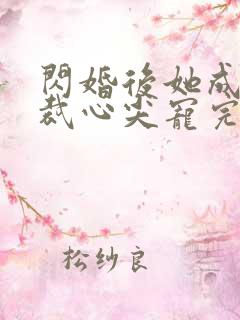 閃婚後她成
裁心尖寵完
松紗良